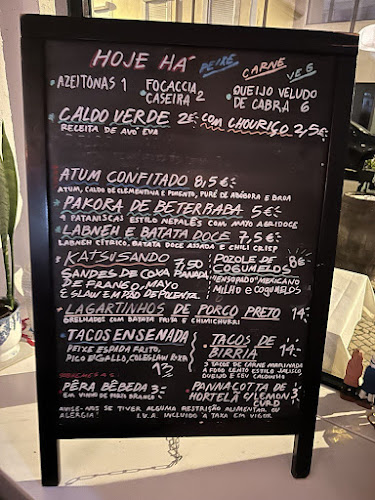 HOJE HÁ PEIXE CARNE VEG
AZEITONAS 1
FOCACCIA
CASEIRA 2
QUEIJO VELUDO
DE CABRA 6
CALDO VERDE 2€ COM CHOURIÇO 2,5€
RECEITA DE AVÓ EVA
ATUM CONFITADO 8,5€
ATUM, CALDO DE CLEMENTINA E PIMENTO, PURÉ DE ABÓBORA E BROA
PAKORA DE BETERRABA 5€
4 PATANISCAS ESTILO NEPALÊS COM MAYO AGRIDOCE
LABNEH E BATATA DOCE 7,5€
LABNEH CÍTRICO, BATATA DOCE ASSADA E CHILI CRISP
KATSUSANDO 7,50
SANDES DE COXA PANADA
DE FRANGO, MAYO
E SLAW EM PÃO DE
POZOLE DE 8€
COGUMELOS
"ENSOPADO" MEXICANO
MILHO E COGUMELOS
LAGARTINHOS DE PORCO PRETO 14
GRELHADOS COM BATATA FRITA E CHIMICHURRI
TACOS ENSENADA
PEIXE ESPADA FRITO,
PICO D'GALLO, COLESLAW
13
TACOS DE 14
BIRRIA
3 TACOS DE CARNE MARINADA
A FOGO LENTO ESTILO JALISCO,
QUEIJO E SEU CALDINHO
SOBREMESAS:
PÊRA BÊBEDA 3
EM VINHO DO PORTO BRANCO
PANNACOTTA DE
HORTELÃ C/LEMON 3
CURD
AVISE-NOS SE TIVER ALGUMA RESTRIÇÃO ALIMENTAR OU
ALERGIA! I.V.A. INCLUÍDO À TAXA EM VIGOR